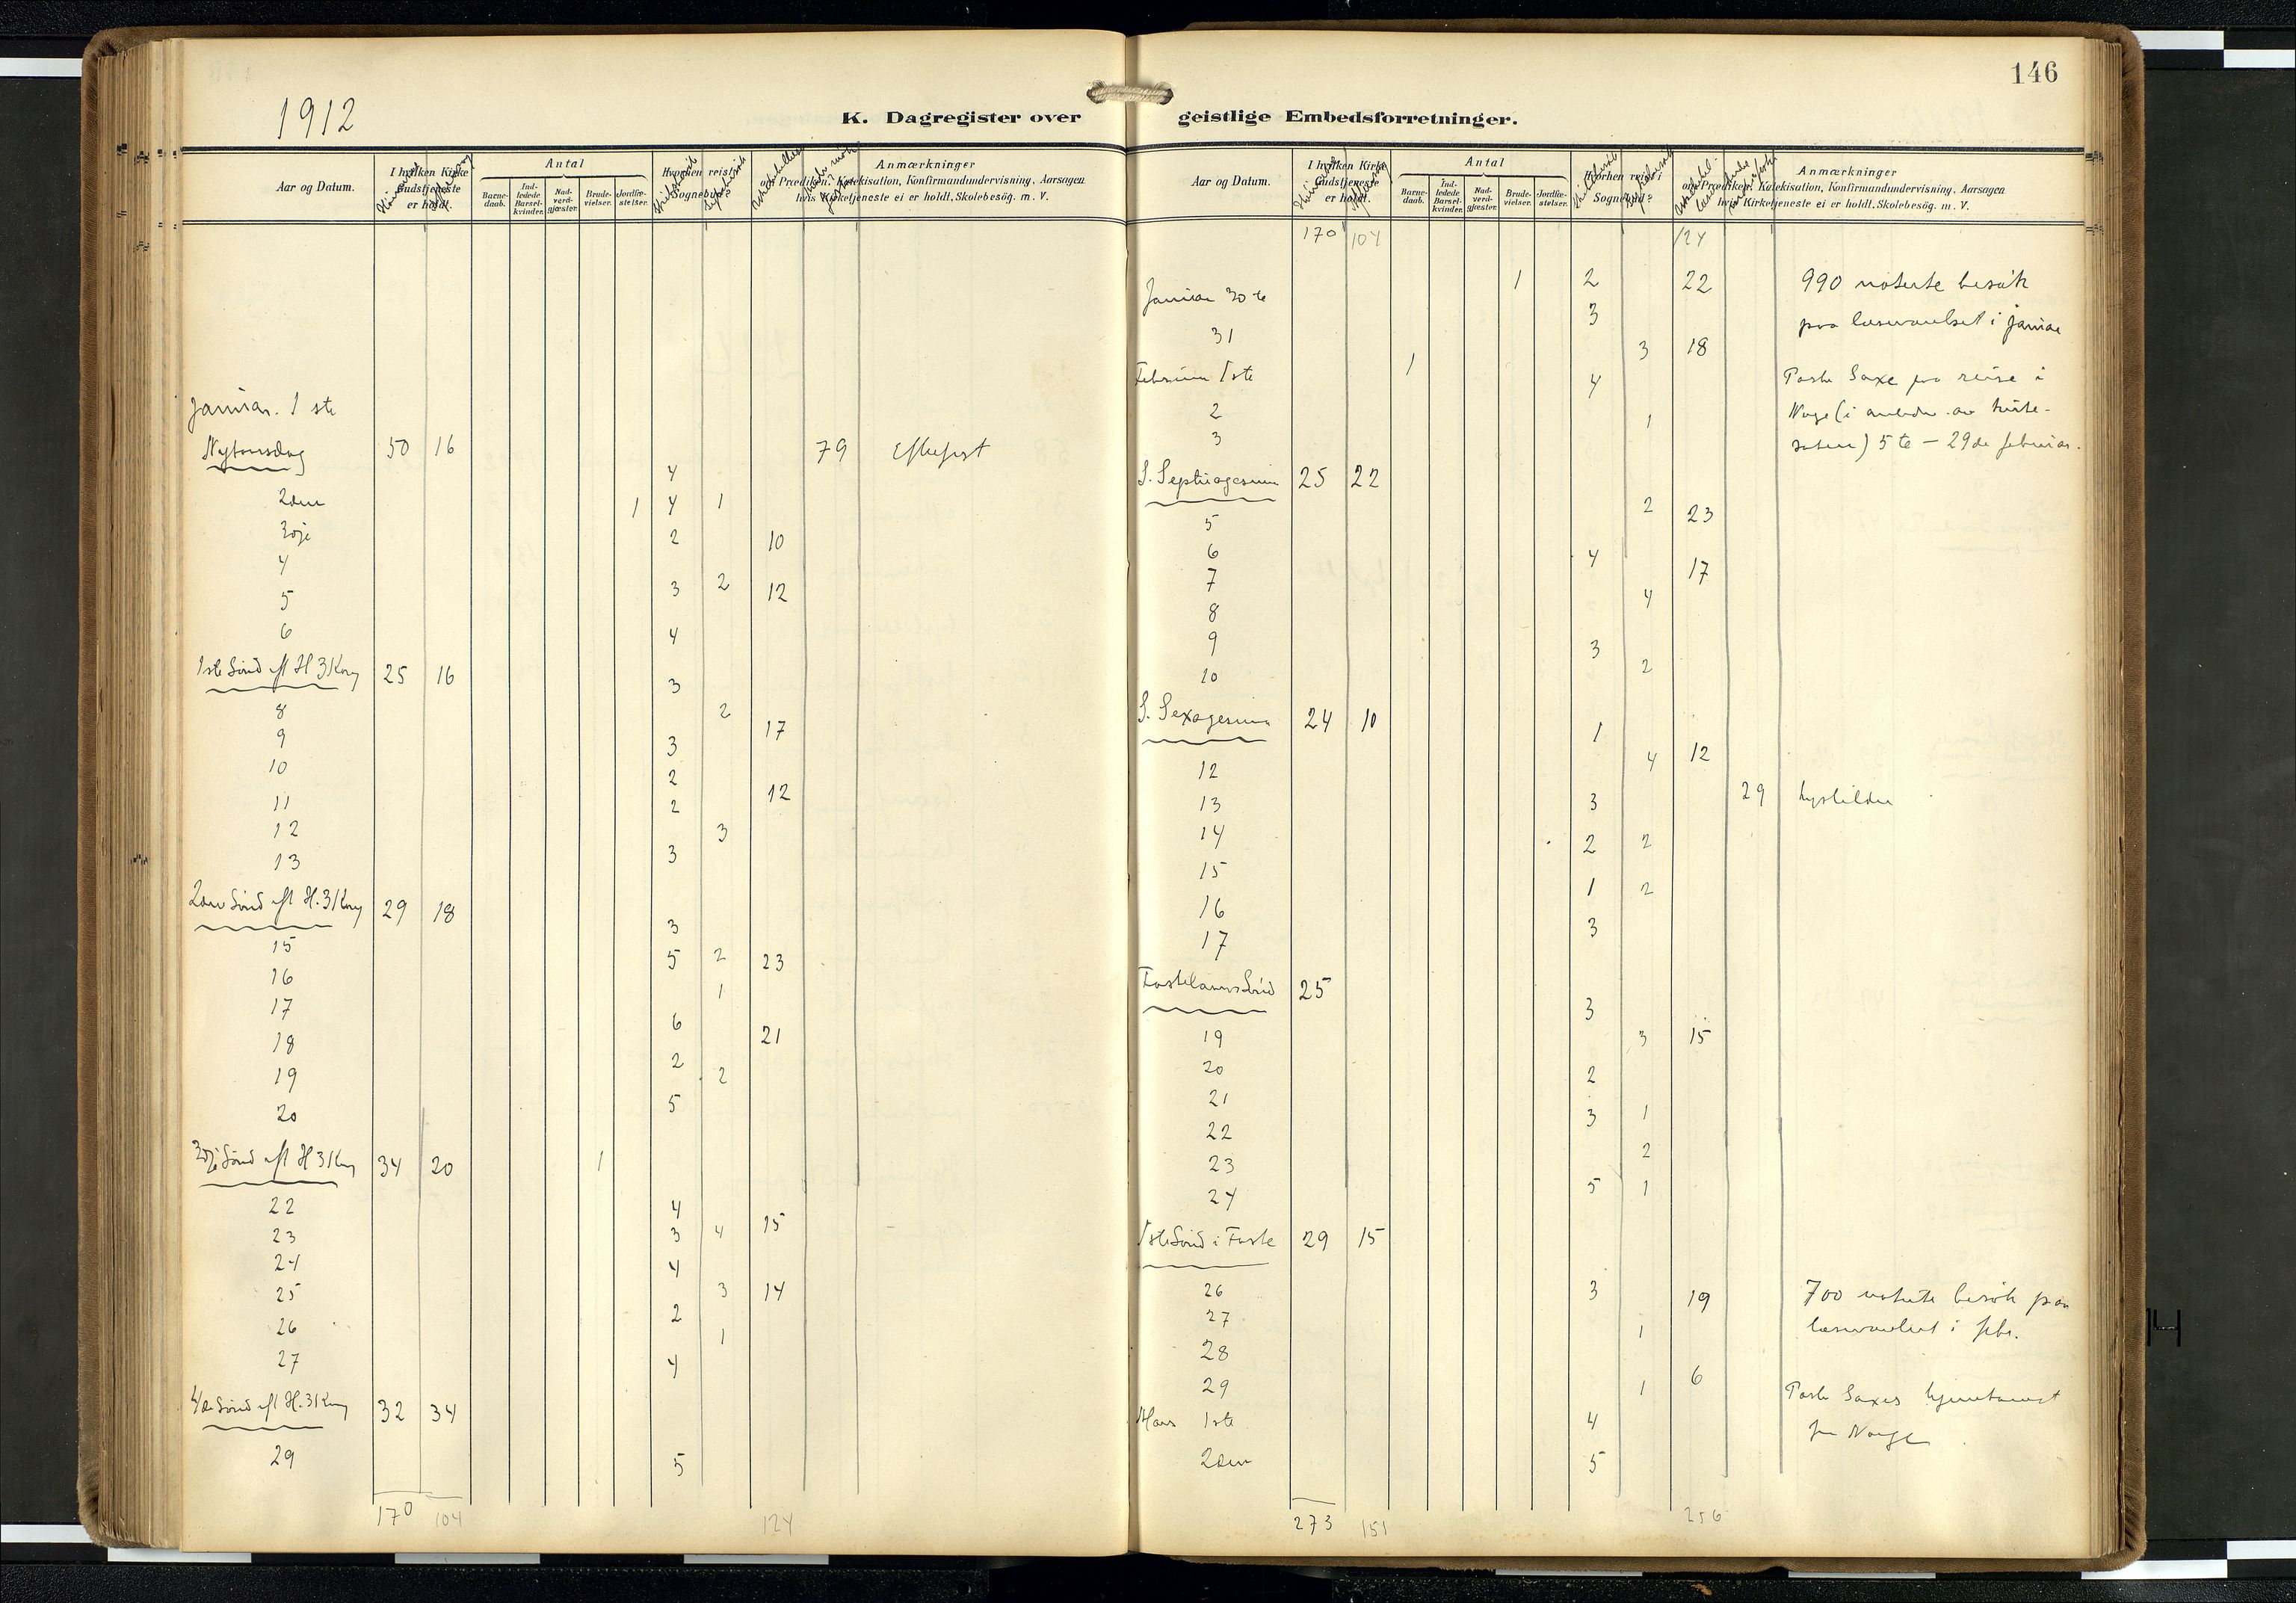 146
1912
K. Dagregister over geistlige Embedsforretninger.
Aar og Datum.
I hvilken Kirke Gudstjeneste er holdt.
Antal
Barne-daab.
Ind-ledede Barsel-kvinder.
Nad-verd-gjæster.
Brude-vielser.
Jordfæ-stelser.
Hvorhen reist i Sognebud?
Anmærkninger
om Prædiken, Katekisation, Konfirmandundervisning, Aarsagen
hvis Kirketjeneste ei er holdt, Skolebesög. m. V.
Januar. 1 ste
Nytaarsdag 50 16 79
4
2den 1 4 1
3dje 2 10
4
5 3 2 12
6 4
1ste Sönd eft H 3 Kong 25 16
3
8 2
9 3 17
10 2
11 2 12
12 3
13 3
2den Sönd eft H. 3 Kong 29 18
3
15 5 2 23
16 1
17 6
18 2 21
19 2
20 5
3dje Sönd eft H 3 Kong 34 20 1
22 4
23 3 4 15
24 4
25 3 14
26 2 1
27 4
4de Sönd eft H. 3 Kong 32 34
29 5
170 104 124
Aar og Datum.
I hvilken Kirke Gudstjeneste er holdt.
Antal
Barne-daab.
Ind-ledede Barsel-kvinder.
Nad-verd-gjæster.
Brude-vielser.
Jordfæ-stelser.
Hvorhen reist i Sognebud?
Anmærkninger
om Prædiken, Katekisation, Konfirmandundervisning, Aarsagen
hvis Kirketjeneste ei er holdt, Skolebesög. m. V.
170 104 124
Januar 30te 1 2 22 990 noterte besök
31 3 paa læseværelset i Januar
3 18
Februar 1ste 1 4 Pastor Saxe paa reise i
2 1 Norge
3 5te — 29de februar.
S. Septuagesima 25 22
2 23
5
6 4
7 17
8 4
9 3
10 2
S. Sexagesima 24 10
1
12 4 12
13 3 29 Lysbilder
14 2 2
15 1 2
16 3
17
Fastelavns Sönd 25
3
19 3 15
20 2
21 3 1
22 2
23 5 1
24
1ste Sönd i Faste 29 15
26 3 19 700 noterte besök paa
27 1 læseværelset i febr.
28
29 1 6 Pastor Saxes hjemkomst
Mars 1ste 4 fra Norge
2den 5
273 151 256